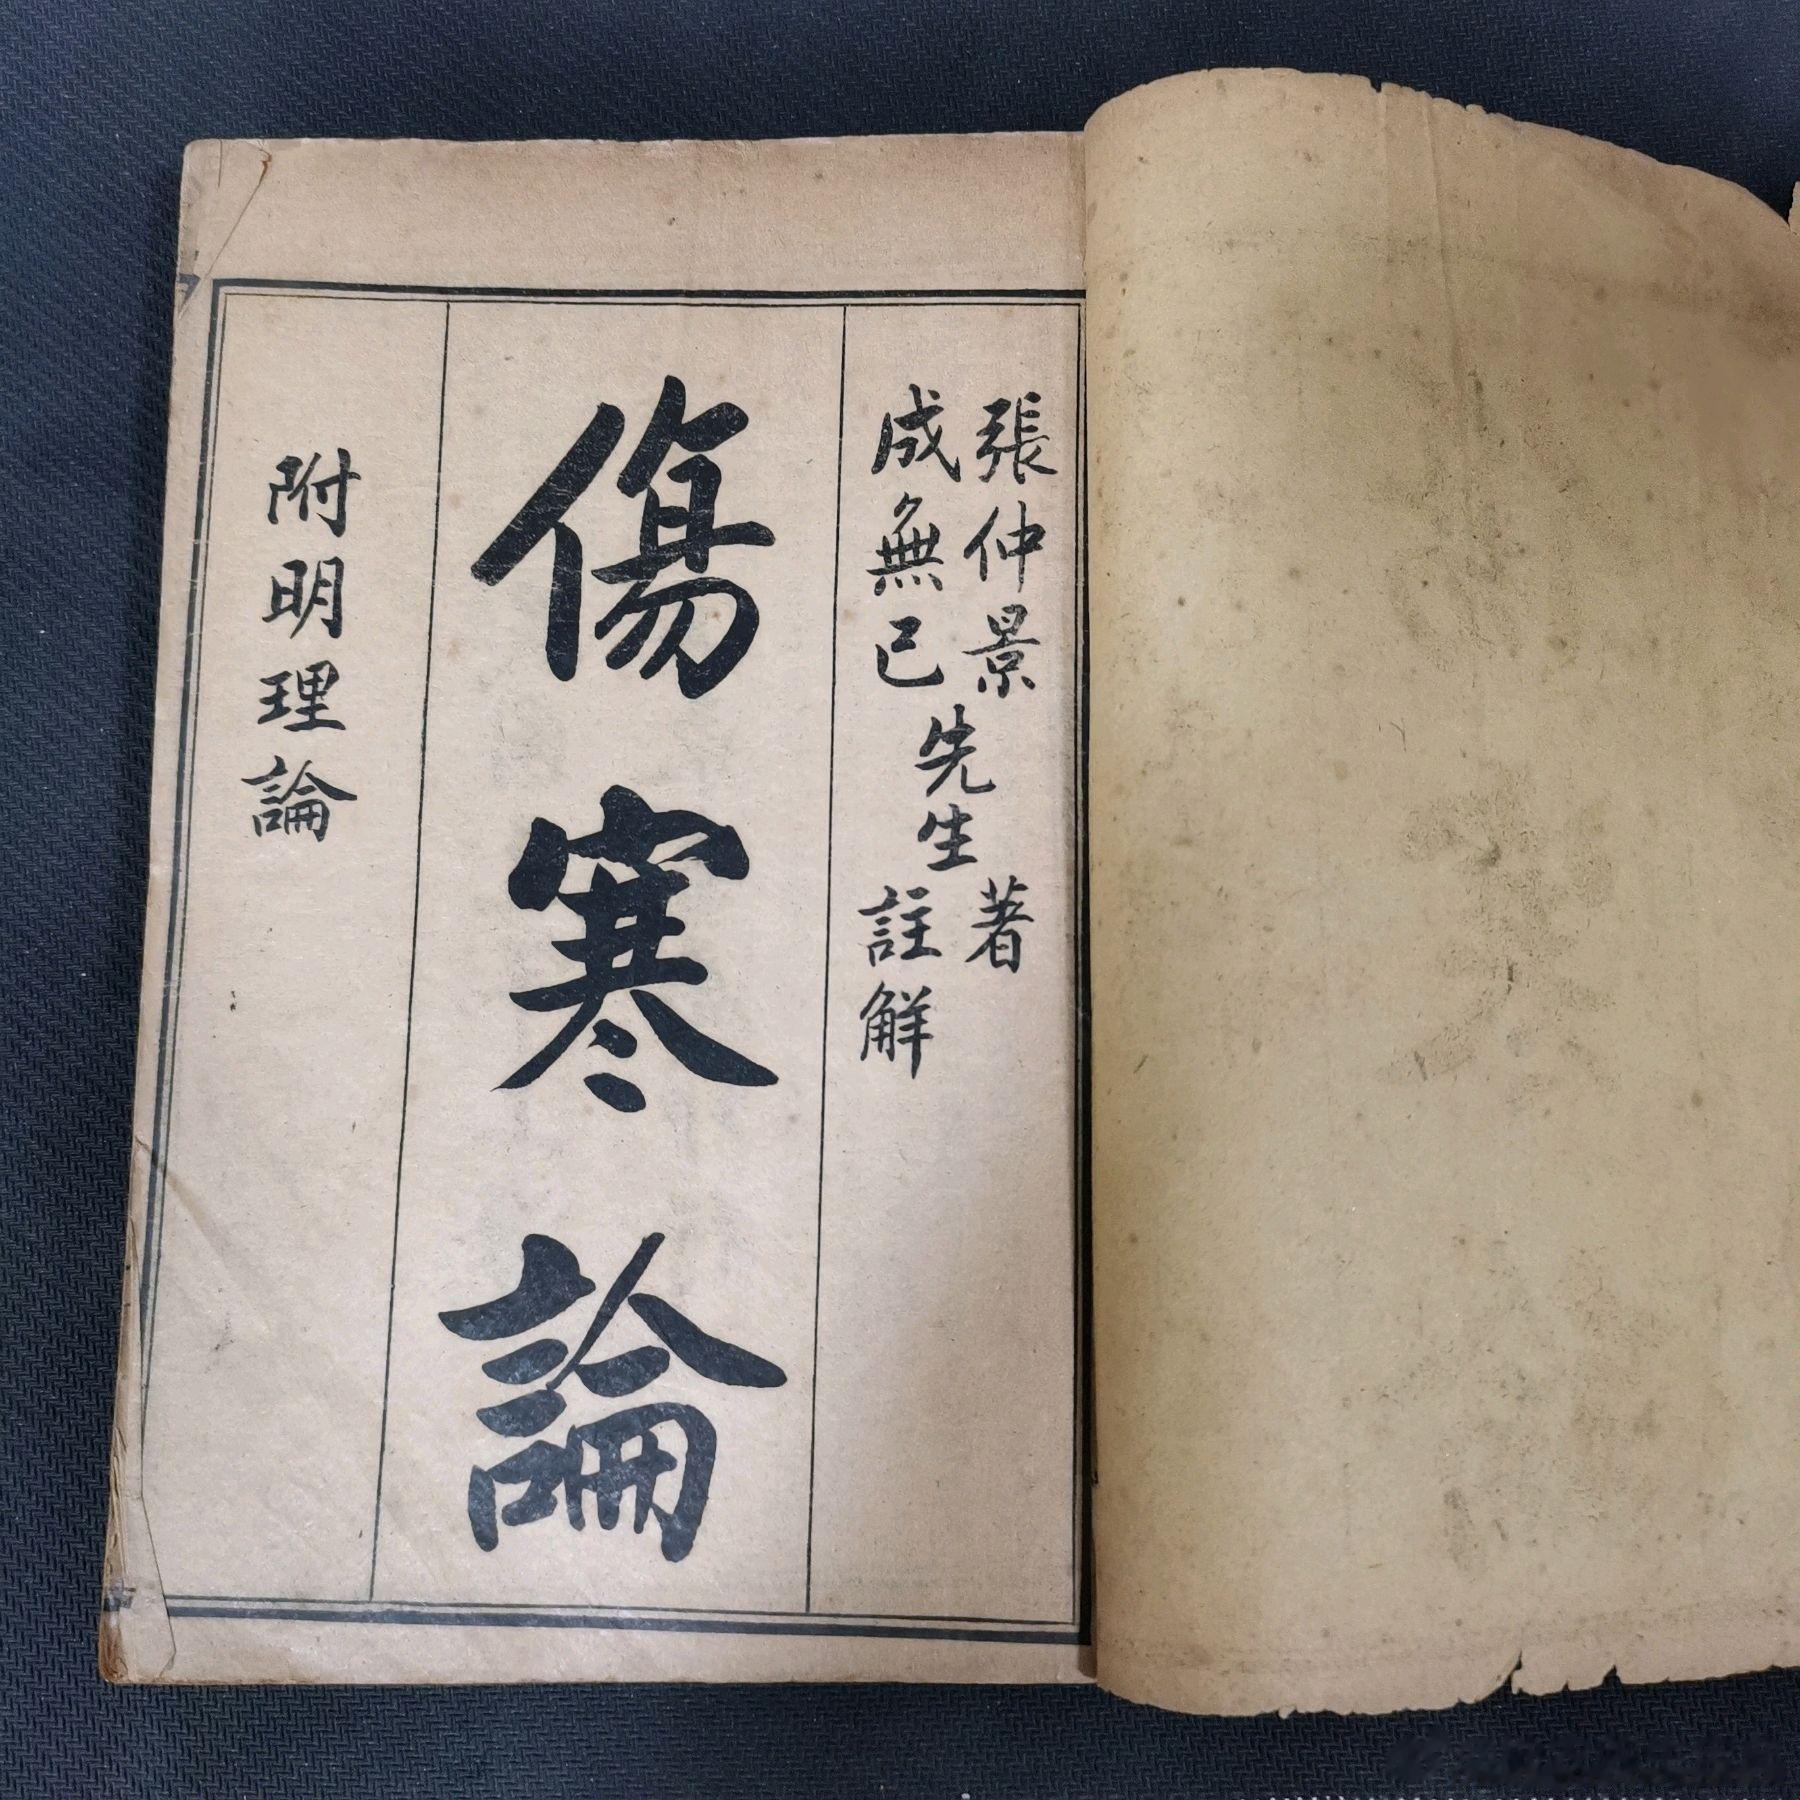 張仲景先生著
成無已先生註解
傷寒論
附明理論